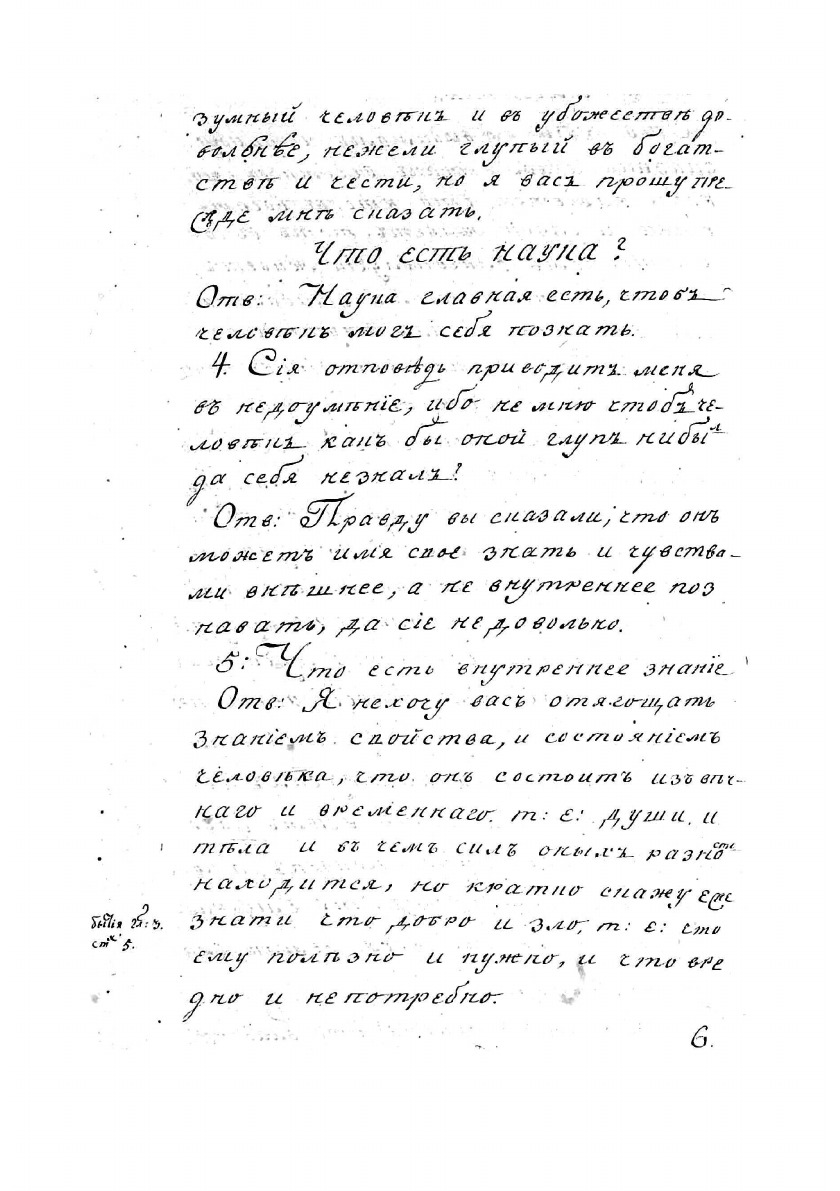 зумный человѣкъ и въ убожествѣ до-
вольнѣе, нежели глупый въ богат-
ствѣ и чести, но я васъ прошу пре-
жде мнѣ сказать.
Что есть наука?
Отв: Наука главная есть, чтобъ
человѣкъ могъ себя познать.
4. Сія отповѣдь приводитъ меня
въ недоумѣніе, ибо не мню чтобы че-
ловѣкъ какъ бы оной глупъ нибыл
да себя незналъ?
Отв: Правду вы сказали, что онъ
можетъ имя свое знать и чувства-
ми внѣшнее, а не внутреннее поз
навать, да сіе недовольно.
5: Что есть внутреннее знаніе
Отв: Я нехочу васъ отягощать
знаніемъ свойства, и состояніемъ
человѣка, что онъ состоитъ изъ вѣч-
наго и временнаго. т: е: души, и
тѣла и въ чемъ силъ оныхъ разности
находится, но кратко скажу еже
знати что добро и зло, т: е: что
ему полѣзно и нужно, и что вре
дно и непотребно.
бытія гл: 3.
стх 5.
6.